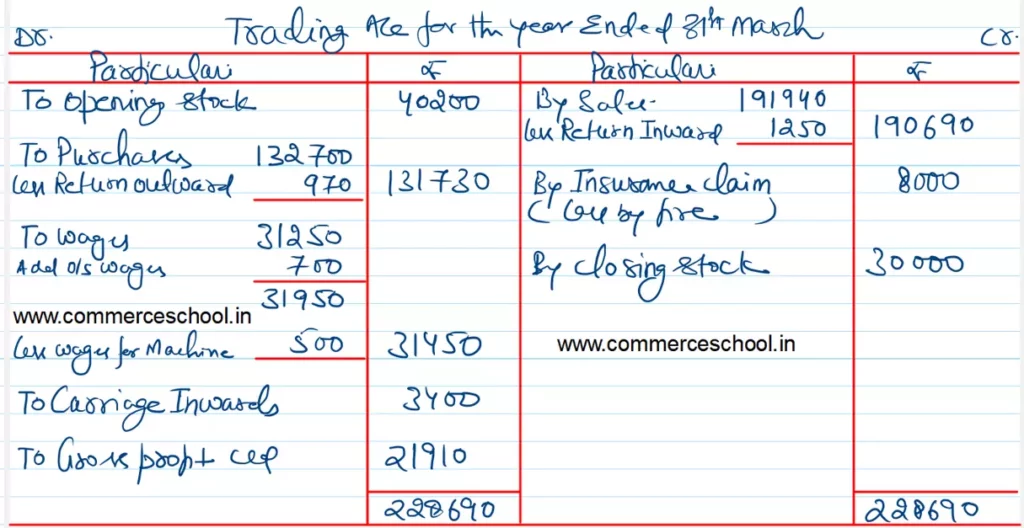 Dr. Trading A/c for the year Ended 31st March Cr.
Particulars ₹ Particulars ₹
To opening stock 40200 By Sales 191940
Less Return Inward 1250 190690
To Purchases 132700
Less Return outward 970 131730 By Insurance claim 8000
(Loss by fire)
To wages 31250
Add o/s wages 700 By closing stock 30000
31950
www.commerceschool.in
Less wages for Machine 500 31450 www.commerceschool.in
To Carriage Inwards 3400
To Gross profit c/d 21910
228690 228690